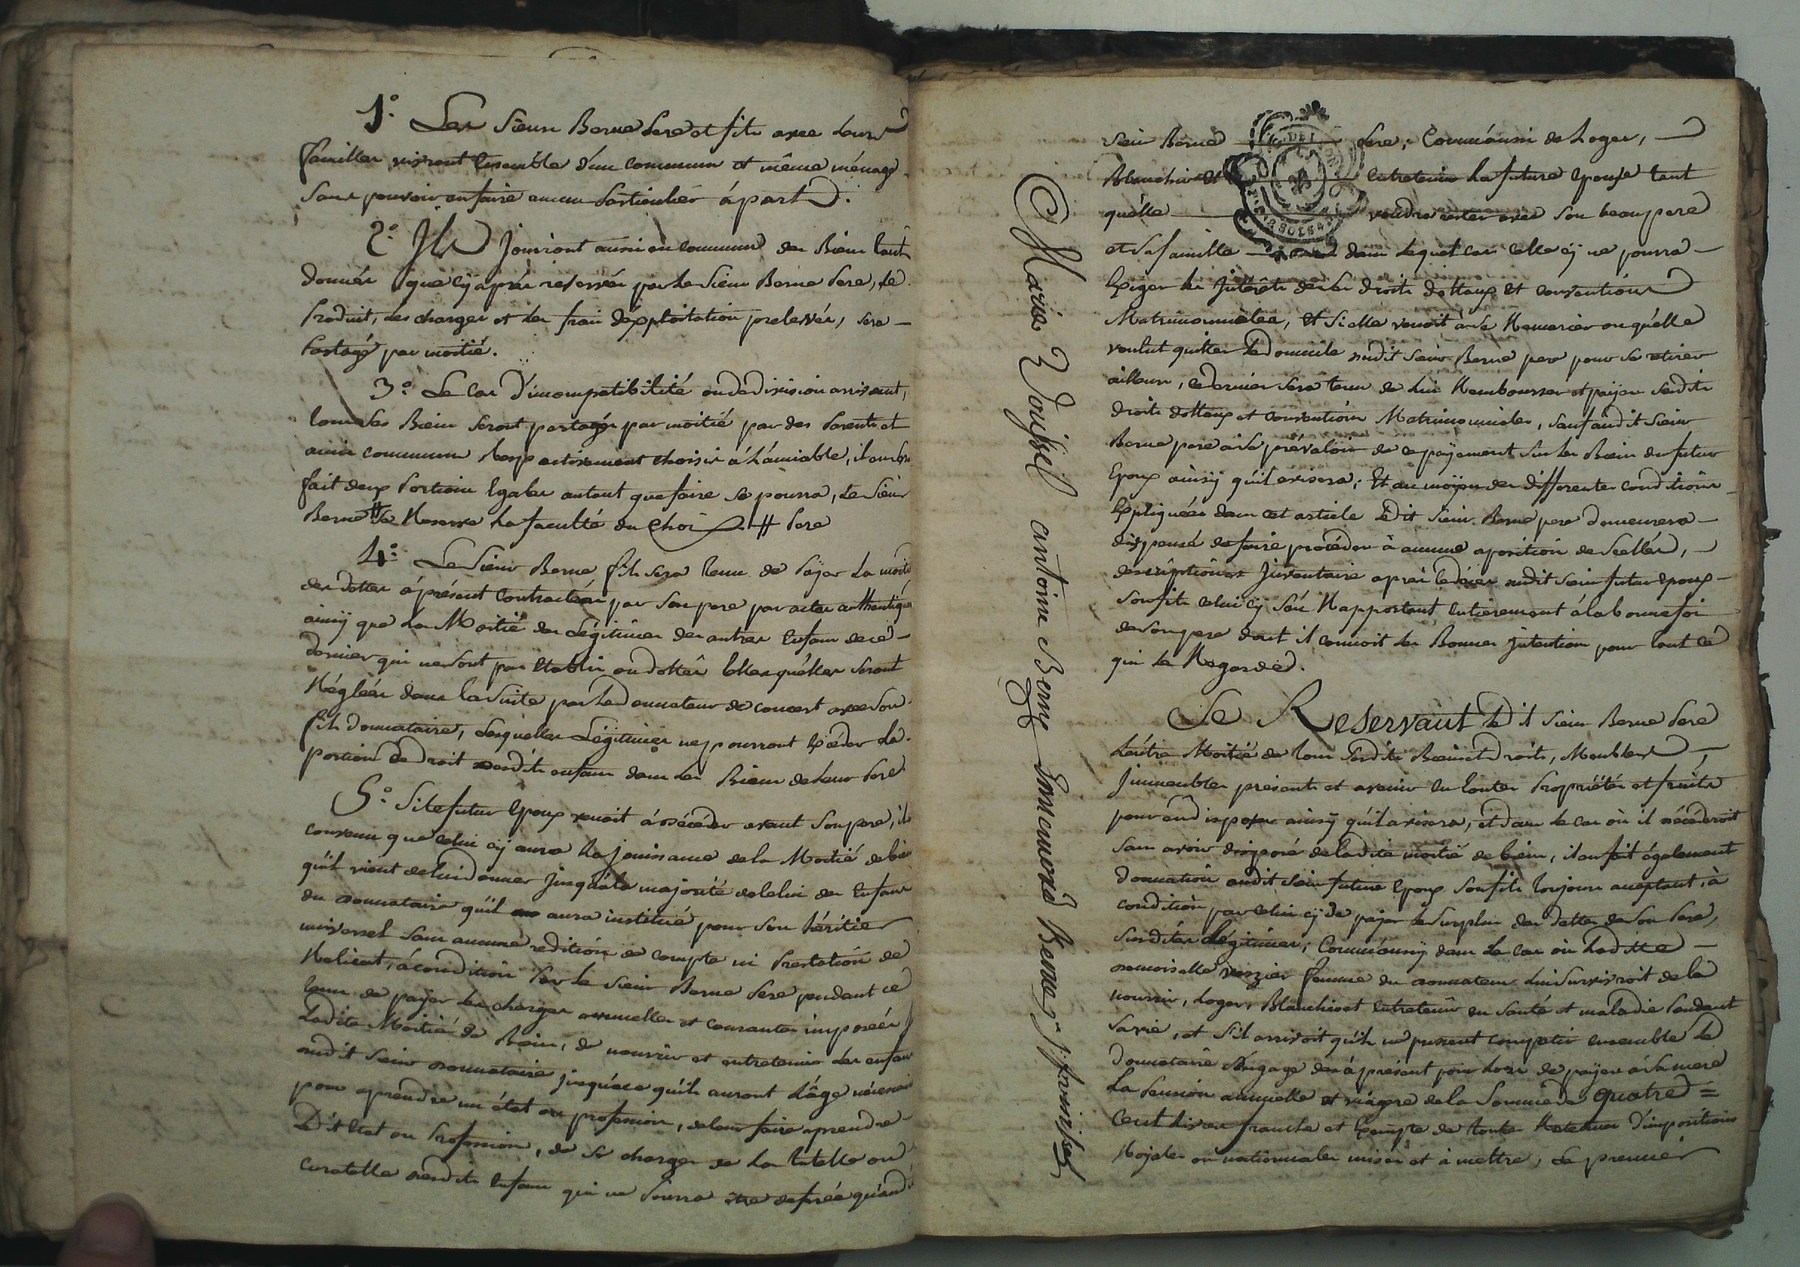 1.° Les Sieurs Berne Pere et fils avec leurs
familles vivront Ensemble d'un commun et même ménage
sans pouvoir en faire aucun Particulier à part.
2.° Ils Jouiront aussi en commun des Biens tant
donnés que cy après reservés par le Sieur Berne Pere, le
Produit, les charges et les frais d'exploitation prelevés, sera
Partagé par moitié.
3.° Le Cas d'incompatibilité ou de division arrivant,
tous les Biens seront partagés par moitié par des Parents et
amis communs Respectivement choisis à L'amiable, il en sera
fait deux Portions Egales autant que faire se pourra, Le Sieur
Berne # se Reserve La faculté du choix # Pere
4.° Le Sieur Berne fils sera tenu de Payer La moitié
des dettes à présent Contractées par son pere par actes authentiques
ainsy que La Moitié des Légitimes des autres Enfans de ce
dernier qui ne sont pas Etablis ou dottés telles qu'elles seront
Réglées dans la Suite par Le donnateur de concert avec son
fils donnataire, Lesquelles Légitimes ne pourront Exceder La
portion de droit desdits enfans dans les Biens de leur Pere
5.° Si le futur Epoux venoit à décéder avant son pere, il est
convenu que celui cy aura La jouissance de la Moitié de biens
qu'il vient de lui donner jusqu'à la majorité de celui des Enfans
du donnataire qu'il aura institué pour son héritier
universel sans aucune redition de compte ni Prestation de
Reliquat, à condition Par le Sieur Berne Pere pendant ce
tems de payer les charges annuelles et courantes imposées
Ladite Moitié de Biens, de nourrir et entretenir les enfans
dudit Sieur donnataire jusqu'à ce qu'ils auront L'âge nécessaire
pour aprendre un état ou profession, de leur faire aprendre
Dit Etat ou Profession, de se charger de La tutelle ou
curatelle desdits Enfans qui ne Pourra être deferée qu'audit
Sieur Berne Pere, Comme aussi de Loger,
Blanchir et Entretenir La future Epouse tant
qu'elle voudra rester avec Son beau pere
et Sa famille dans Lequel cas celle cy ne pourra
Exiger les Intérêts de ses droits dottaux et conventions
Matrimonniales, Et Si elle venoit à se Remarier ou qu'elle
voulut quitter Le domicile dudit Sieur Berne pere pour se retirer
ailleurs, ce dernier sera tenu de lui Rembourser et payer sesdits
droits dottaux et conventions Matrimonniales, Sauf audit Sieur
Berne pere à se prévaloir de ce payement Sur les Biens du futur
Epoux ainsy qu'il avisera; Et au moyen des differentes conditions
Expliquées dans cet article Ledit Sieur Berne pere demeurera
dispensé de faire procéder à aucune aposition de Scellés,
description et Inventaire après le décès dudit Sieur futur Epoux
son fils celui cy s'en Rapportant Entièrement à la bonne foi
de son pere dont il connoit Les Bonnes Intentions pour tout ce
qui Le Regarde.
Se Reservant Ledit Sieur Berne Pere
L'autre Moitié de tous Sesdits Biens et droits, Meubles
Immeubles présents et avenir En toutes Propriétés et fruits
pour en disposer ainsy qu'il avisera, et dans le cas où il décéderoit
Sans avoir disposé de ladite moitié de biens, il en fait également
Donnation audit Sieur futur Epoux Son fils toujours acceptant, à
condition par celui cy de payer le Surplus des dettes de Son Pere,
Susdites Légitimes; Comme aussy dans Le cas où Ladite
demoiselle femme du donnateur Lui Surviviroit de la
nourrir, Loger, Blanchir et Entretenir En Santé et maladie Pendant
Sa vie, et S'il arrivoit qu'ils ne pussent compatir ensemble le
Donnataire S'engage dès à présent pour Lors de payer à Sa mere
La Pension annuelle et viagere de la Somme de quatre
Cent Livres franche et Exempte de toutes Retenues D'impositions
Royales ou nationnales mises et à mettre, Le premier
Marie antoine Berne Berne